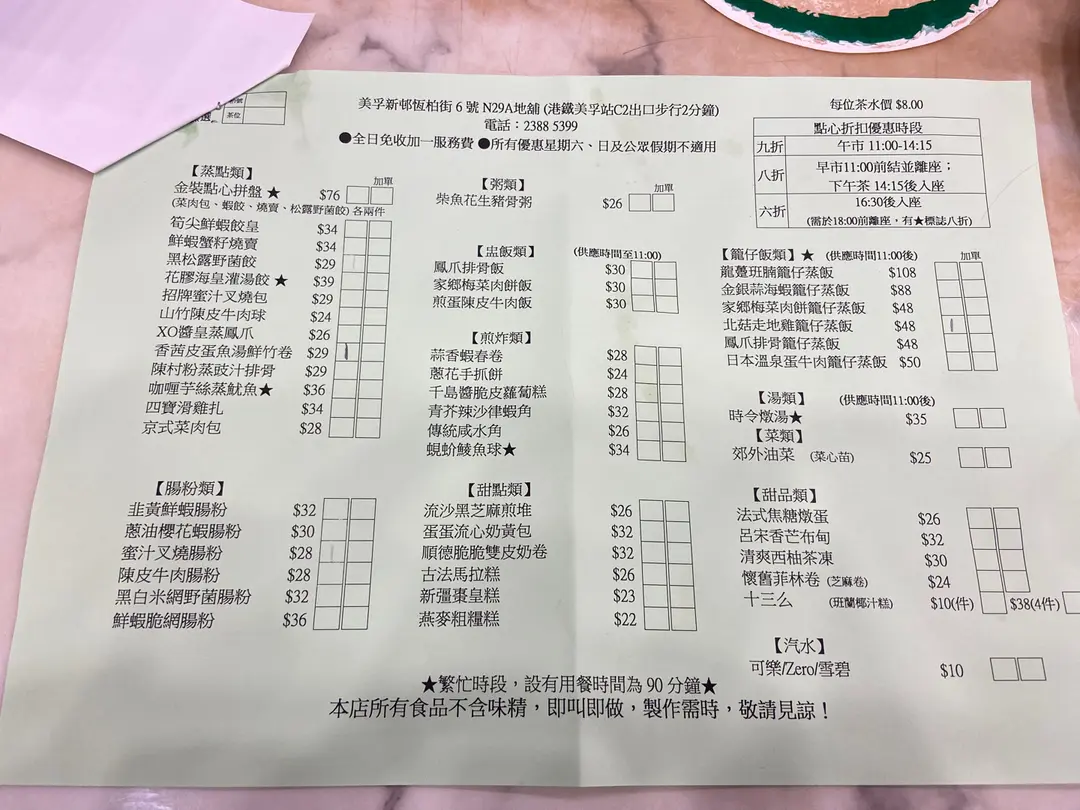 茶位
美孚新邨恆柏街 6 號 N29A地舖 (港鐵美孚站C2出口步行2分鐘)
電話：2388 5399
●全日免收加一服務費 ●所有優惠星期六、日及公眾假期不適用
每位茶水價 $8.00
點心折扣優惠時段
九折 午市 11:00-14:15
八折 早市11:00前結並離座；
下午茶 14:15後入座
六折 16:30後入座
(需於18:00前離座，有★標誌八折)
【蒸點類】 加單
金裝點心拼盤★ $76
(菜肉包、蝦餃、燒賣、松露野菌餃) 各兩件
筍尖鮮蝦餃皇 $34
鮮蝦蟹籽燒賣 $34
黑松露野菌餃 $29
花膠海皇灌湯餃★ $39
招牌蜜汁叉燒包 $29
山竹陳皮牛肉球 $24
XO醬皇蒸鳳爪 $26
香茜皮蛋魚湯鮮竹卷 $29
陳村粉蒸豉汁排骨 $29
咖喱芋絲蒸魷魚★ $36
四寶滑雞扎 $34
京式菜肉包 $28
【腸粉類】
韭黃鮮蝦腸粉 $32
蔥油櫻花蝦腸粉 $30
蜜汁叉燒腸粉 $28
陳皮牛肉腸粉 $28
黑白米網野菌腸粉 $32
鮮蝦脆網腸粉 $36
【粥類】 加單
柴魚花生豬骨粥 $26
【盅飯類】 (供應時間至11:00)
鳳爪排骨飯 $30
家鄉梅菜肉餅飯 $30
煎蛋陳皮牛肉飯 $30
【煎炸類】
蒜香蝦春卷 $28
蔥花手抓餅 $24
千島醬脆皮蘿蔔糕 $28
青芥辣沙律蝦角 $32
傳統咸水角 $26
蜆蚧鯪魚球★ $34
【甜點類】
流沙黑芝麻煎堆 $26
蛋蛋流心奶黃包 $32
順德脆脆雙皮奶卷 $32
古法馬拉糕 $26
新彊棗皇糕 $23
燕麥粗糧糕 $22
【籠仔飯類】★ (供應時間11:00後) 加單
龍躉班腩籠仔蒸飯 $108
金銀蒜海蝦籠仔蒸飯 $88
家鄉梅菜肉餅籠仔蒸飯 $48
北菇走地雞籠仔蒸飯 $48
鳳爪排骨籠仔蒸飯 $48
日本溫泉蛋牛肉籠仔蒸飯 $50
【湯類】 (供應時間11:00後)
時令燉湯★ $35
【菜類】
郊外油菜 (菜心苗) $25
【甜品類】
法式焦糖燉蛋 $26
呂宋香芒布甸 $32
清爽西柚茶凍 $30
懷舊菲林卷 (芝麻卷) $24
十三么 (班蘭椰汁糕) $10(件) $38(4件)
【汽水】
可樂/Zero/雪碧 $10
★繁忙時段，設有用餐時間為 90 分鐘★
本店所有食品不含味精，即叫即做，製作需時，敬請見諒！